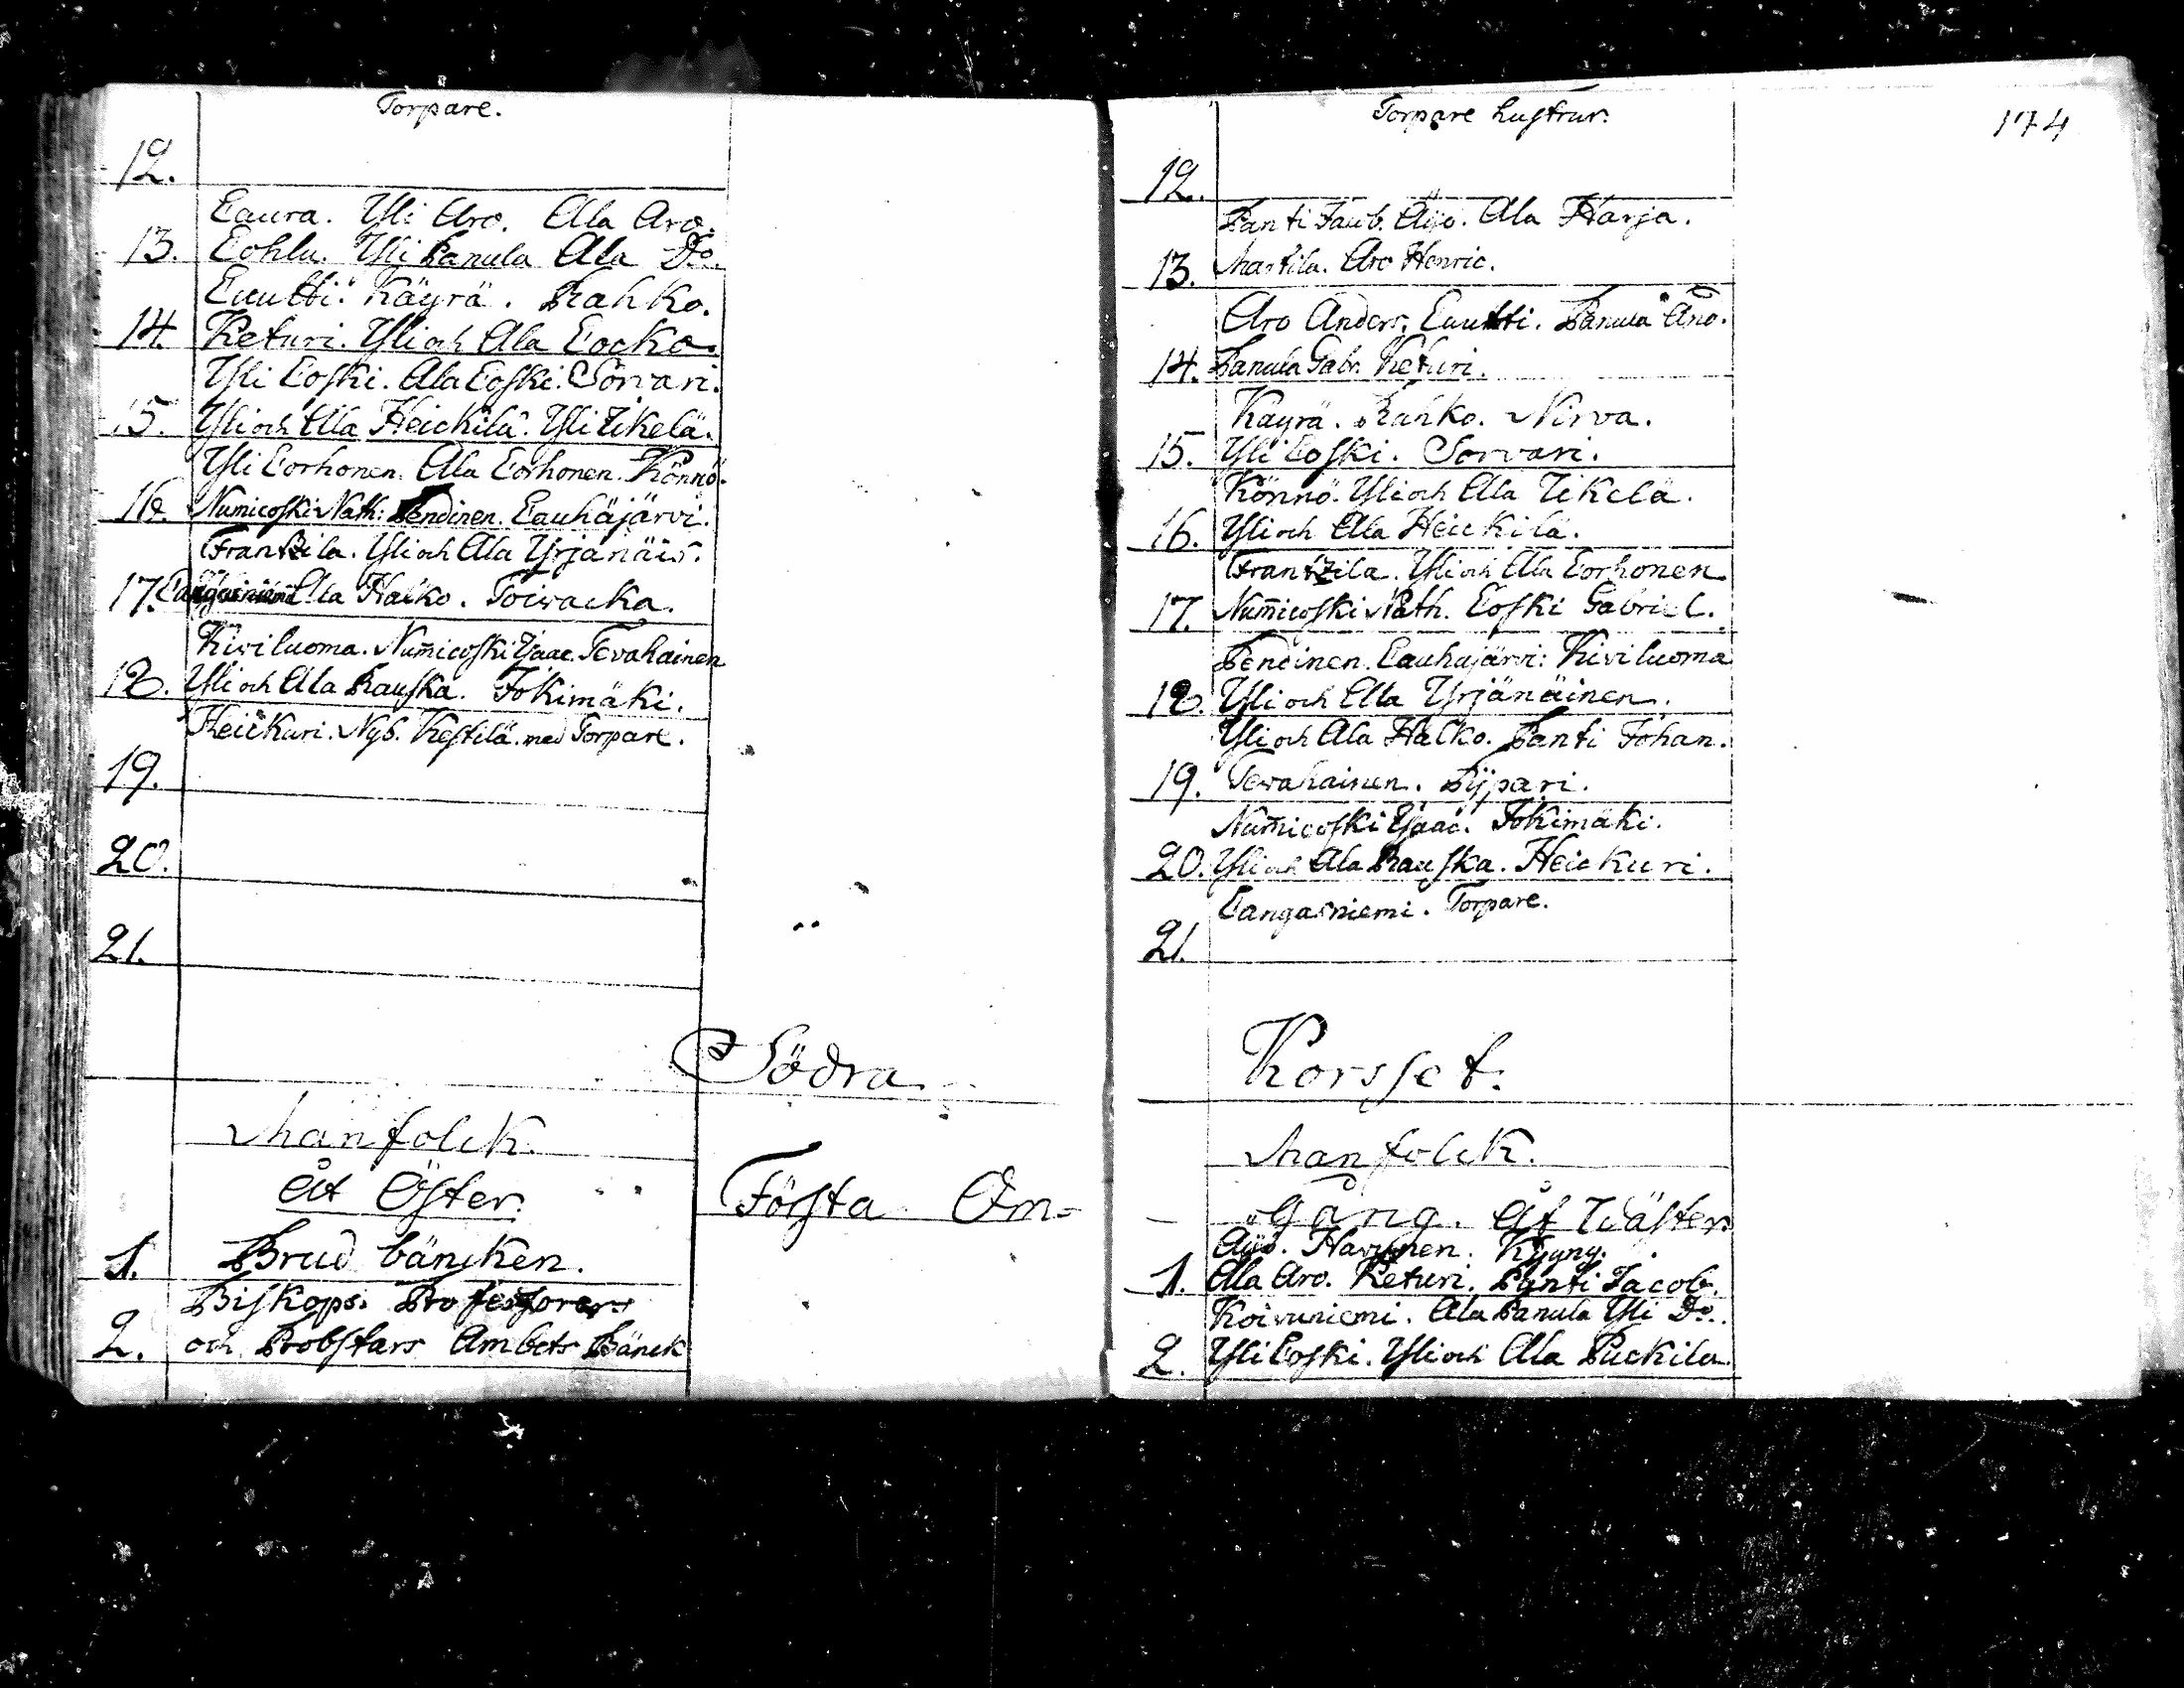 Torpare.
12.
Laura. Yli Aro. Ala Aro.
13. Lohlu. Yli Panula Ala Do.
Luutti. Käyrä. Rahko.
14. Keturi. Yli och Ala Locko.
Yli Loski. Ala Loski. Sorvari.
15. Yli och Ala Heickilä. Yli Ikelä.
Yli Lorhonen. Ala Lorhonen. Könnö.
16. Numicoski Nath: Pendinen. Lauhajärvi.
Frantzila. Yli och Ala Yrjänäis.
17. Ala Halko. Toiwacka.
Kiviluoma. Numicoski Isaac. Tevahainen
18. Yli och Ala Rauska. Jokimäki.
Heickuri. Nyb. Kestilä med Torpare.
19.
20.
21.
Södra
Manfolck.
Åt Öster.
Första Om=
1. Brud bäncken.
Biskops. Professorers
2. och Probstars Ambets Bänck
174
Torpare hustrur.
12.
Panti Jacob. Äijö. Ala Harja.
13. Martila. Aro Henric.
Aro Anders. Luutti. Panula And.
14. Panula Gabr. Keturi.
Käyrä. Rahko. Nirva.
15. Yli Loski. Sorvari.
Könnö. Yli och Ala Ikelä.
16. Yli och Ala Heickilä.
Frantzila. Yli och Ala Lorhonen
17. Numicoski Nath. Loski Gabriel.
Pendinen. Lauhajärvi. Kiviluoma
18. Yli och Ala Yrjänäinen.
Yli och Ala Halko. Panti Johan.
19. Tevahainen. Pijpari.
Numicoski Isaac. Jokimäki.
20. Yli och Ala Rauska. Heickuri.
Langasniemi. Torpare.
21.
Korsset.
Manfolck.
Gång. Åt Wäster.
Äijö. Kyyny.
1. Ala Aro. Keturi. Panti Jacob.
Koivuniemi. Ala Panula Yli Do.
2. Yli Loski. Yli och Ala Puckila.